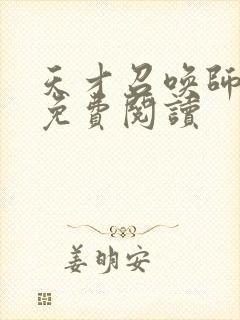 天才召喚師
免費閱讀
姜明安